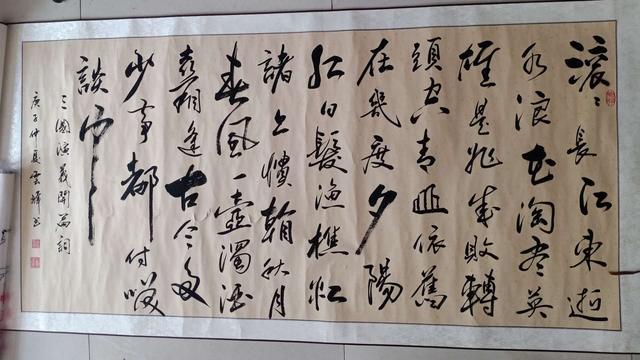 滚〻長江東逝
水浪花淘尽英
雄是非成敗轉
頭空青山依舊
在幾度夕陽
紅白髮渔樵江
渚上慣看秋月
春風一壺濁酒
喜相逢古今多
少事都付笑
談中
三國演義開篇詞
庚子仲夏雲書